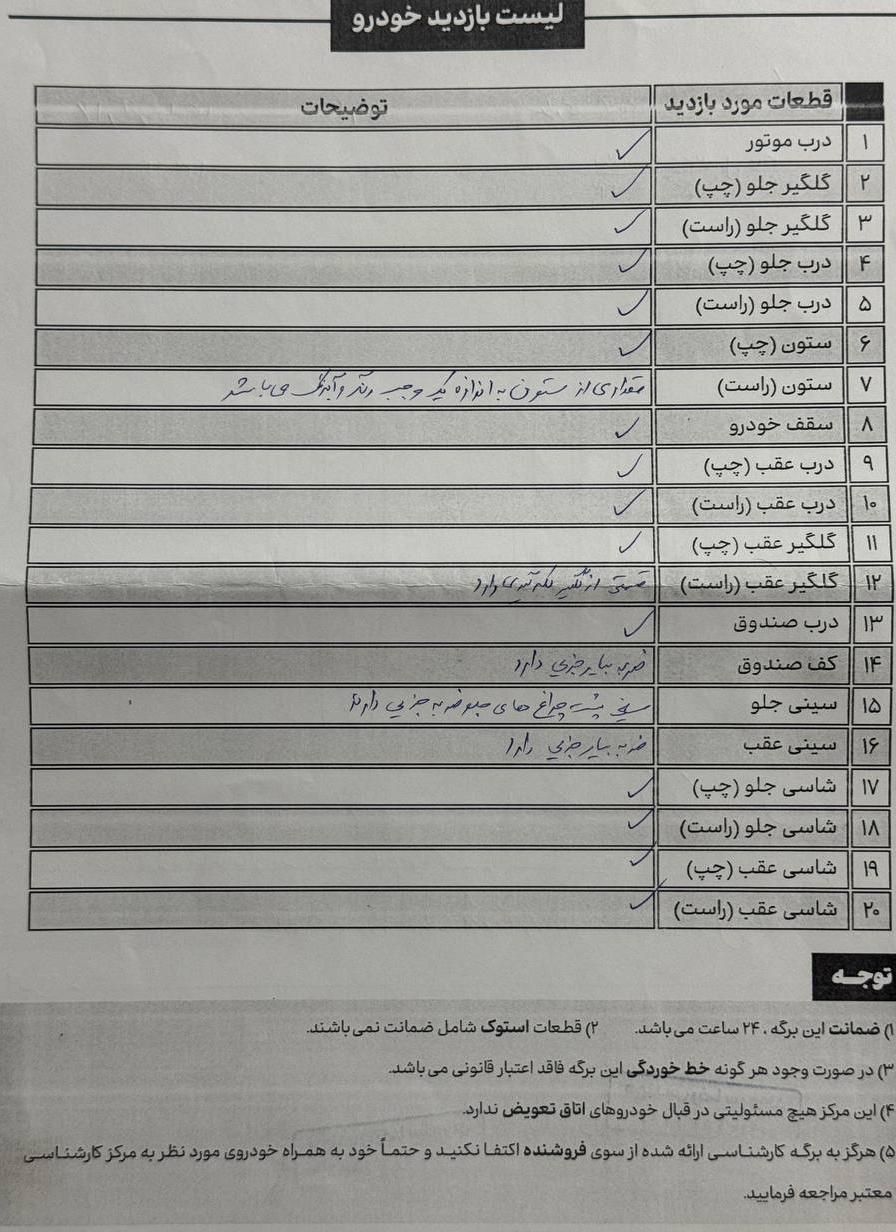 لیست بازدید خودرو
قطعات مورد بازدید توضیحات
۱ درب موتور ✓
۲ گلگیر جلو (چپ) ✓
۳ گلگیر جلو (راست) ✓
۴ درب جلو (چپ) ✓
۵ درب جلو (راست) ✓
۶ ستون (چپ) ✓
۷ ستون (راست) مقداری از ستون به اندازه یک وجب رنگ و آبرنگ می باشد
۸ سقف خودرو ✓
۹ درب عقب (چپ) ✓
۱۰ درب عقب (راست) ✓
۱۱ گلگیر عقب (چپ) ✓
۱۲ گلگیر عقب (راست) قسمتی از گلگیر لکه گیری دارد
۱۳ درب صندوق ✓
۱۴ کف صندوق ضربه بسیار جزیی دارد
۱۵ سینی جلو سینی پشت چراغ های جلو ضربه جزیی دارند
۱۶ سینی عقب ضربه بسیار جزیی دارد
۱۷ شاسی جلو (چپ) ✓
۱۸ شاسی جلو (راست) ✓
۱۹ شاسی عقب (چپ) ✓
۲۰ شاسی عقب (راست) ✓
توجـه
۱) ضمانت این برگه ، ۲۴ ساعت می باشد. ۲) قطعات استوک شامل ضمانت نمی باشند.
۳) در صورت وجود هر گونه خط خوردگی این برگه فاقد اعتبار قانونی می باشد.
۴) این مرکز هیچ مسئولیتی در قبال خودروهای اتاق تعویض ندارد.
۵) هرگز به برگه کارشناسی ارائه شده از سوی فروشنده اکتفا نکنید و حتماً خود به همراه خودروی مورد نظر به مرکز کارشناسی
معتبر مراجعه فرمایید.